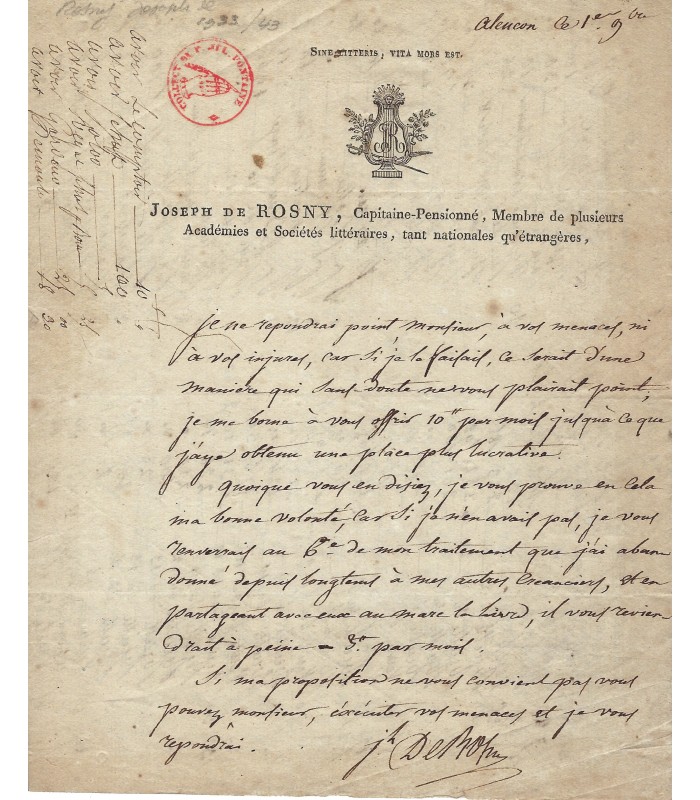 Rosny Joseph de
1933/43
alencon ce 1er 9bre
Sine litteris, vita mors est.
COLLECT DE P. JUL. FONTAINE
JR
Joseph de ROSNY, Capitaine-Pensionné, Membre de plusieurs
Académies et Sociétés littéraires, tant nationales qu'étrangères,
je ne repondrai point, monsieur, à vos menaces, ni
à vos injures, car si je le faisais, ce serait d'une
maniere qui sans doute ne vous plairait point,
je me borne à vous offrir 10ᶠ par mois jusqu'à ce que
j'aye obtenu une place plus lucrative.
quoique vous en disiez, je vous prouve en cela
ma bonne volonté, car si je n'en avais pas, je vous
renverrais au 5e de mon traitement que j'ai aban
donné depuis longtems à mes autres creanciers, et en
partageant avec eux au marc la livre, il vous revien-
drait à peine 3ᶠ par mois.
Si ma proposition ne vous convient pas vous
pouvez monsieur, éxécuter vos menaces et je vous
repondrai.
jh De Rosny
avoir le comptoir 10
avoir 100
avoir
avoir
avoir 25
avoir 18 30